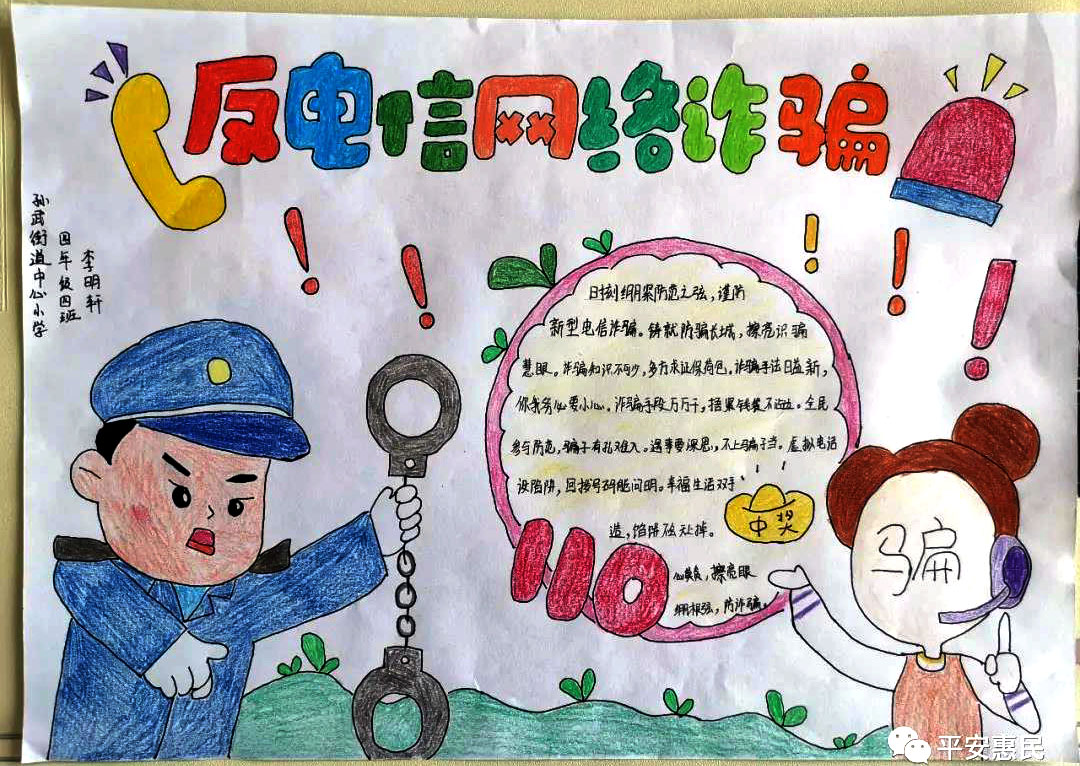 反电信网络诈骗
孙武街道中心小学
四年级四班
李明轩
时刻绷紧防范之弦，谨防
新型电信诈骗。铸就防骗长城，擦亮识骗
慧眼。诈骗知识不可少，多方求证保荷包。诈骗手法日益新，
你我务必要小心。诈骗手段万万千，捂紧钱袋不沾边。全民
参与防范，骗子有孔难入。遇事要深思，不上骗子当。虚拟电话
设陷阱，回拨号码能问明。幸福生活双手
造，馅饼砸无掉。
中奖
110
擦亮眼
绷根弦，防诈骗。
骗
平安惠民